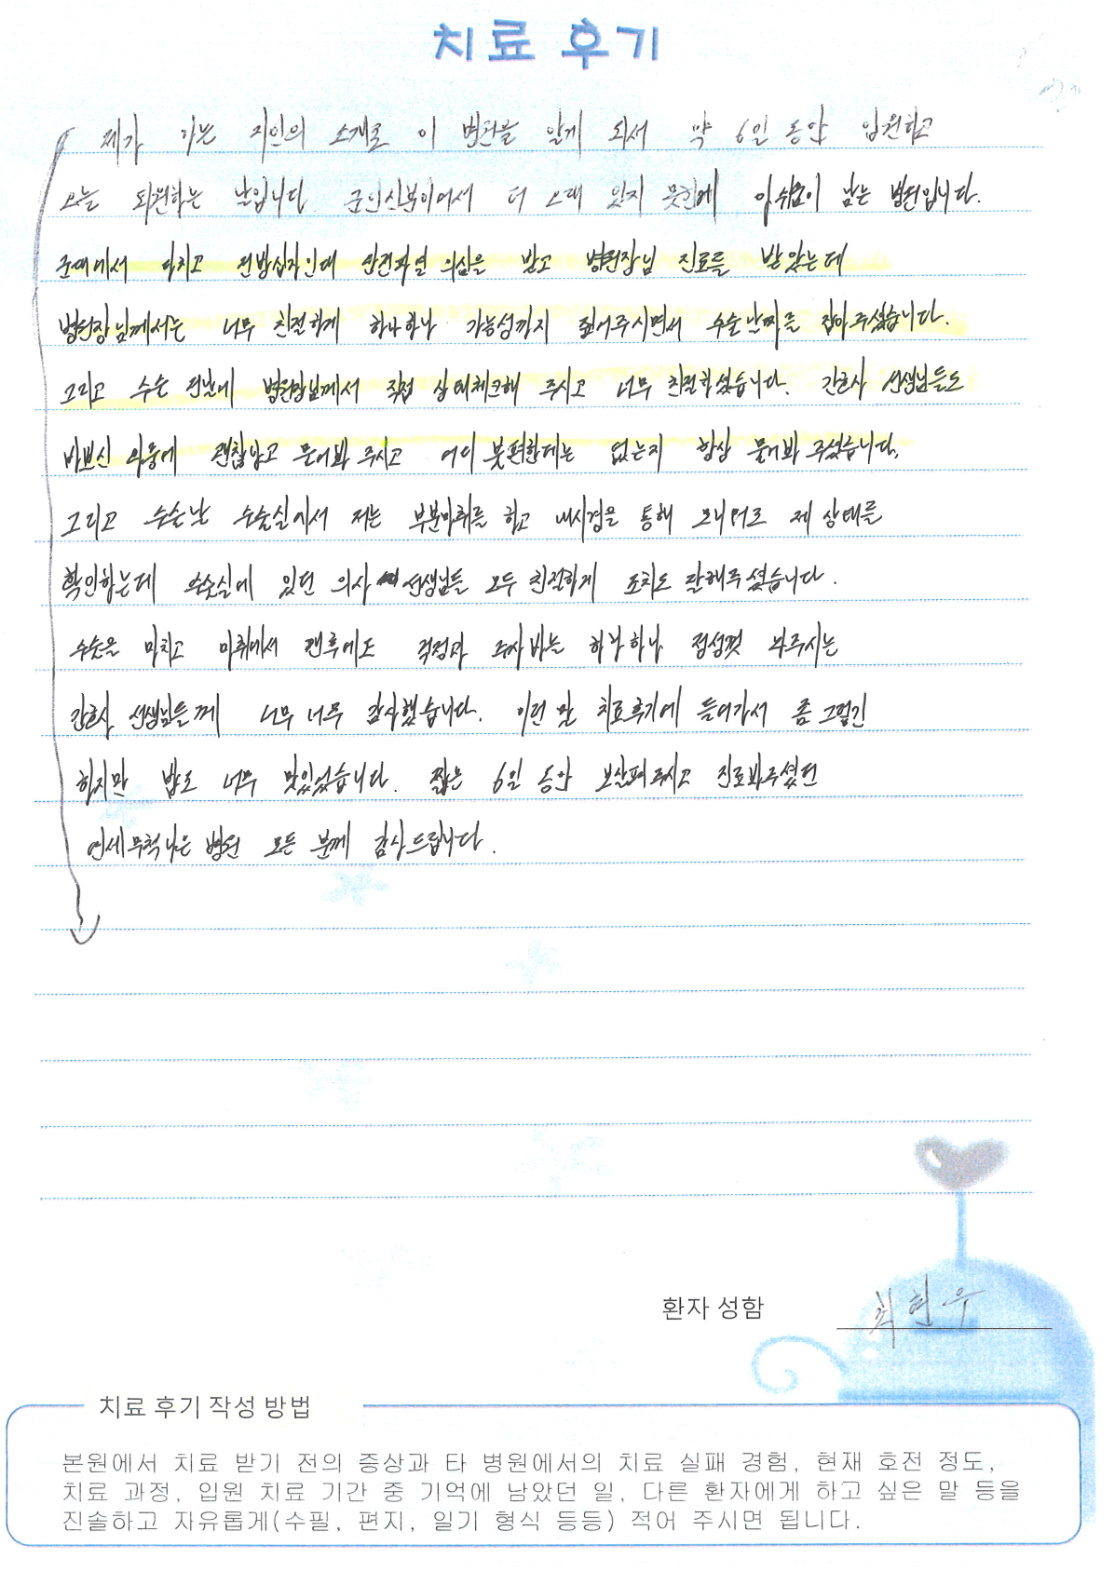 치료 후기
제가 아는 지인의 소개로 이 병원을 알게 되서 약 6일 동안 입원하고
오늘 퇴원하는 날입니다 군인신분이여서 더 오래 있지 못한게 아쉬움이 남는 병원입니다.
군대에서 다치고 전방십자인대 완전파열 의심을 받고 병원장님 진료를 받았는데
병원장님께서는 너무 친절하게 하나하나 가능성까지 짚어주시면서 수술날짜를 잡아주셨습니다.
그리고 수술 전날에 병원장님께서 직접 상태체크해 주시고 너무 친절하셨습니다. 간호사 선생님들도
바쁘신 와중에 괜찮냐고 물어봐 주시고 어디 불편한데는 없는지 항상 물어봐 주셨습니다.
그리고 수술날 수술실에서 저는 부분마취를 하고 내시경을 통해 모니터로 제 상태를
확인하는데 수술실에 있던 의사 선생님들 모두 친절하게 조치도 잘해주셨습니다.
수술을 마치고 마취에서 깬후에도 걱정과 주사바늘 하나하나 정성껏 놔주시는
간호사 선생님들께 너무 너무 감사했습니다. 이런 말 치료후기에 들어가서 좀 그렇긴
하지만 밥도 너무 맛있었습니다. 짧은 6일 동안 보살펴주시고 진료봐주셨던
연세무척나은 병원 모든 분께 감사드립니다.
환자 성함 최현우
치료 후기 작성 방법
본원에서 치료 받기 전의 증상과 타 병원에서의 치료 실패 경험, 현재 호전 정도,
치료 과정, 입원 치료 기간 중 기억에 남았던 일, 다른 환자에게 하고 싶은 말 등을
진솔하고 자유롭게(수필, 편지, 일기 형식 등등) 적어 주시면 됩니다.